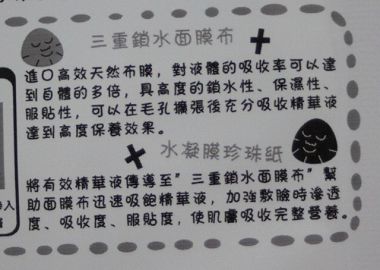 三重鎖水面膜布
進口高效天然布膜，對液體的吸收率可以達
到自體的多倍，具高度的鎖水性、保濕性、
服貼性，可以在毛孔擴張後充分吸收精華液
達到高度保養效果。
水凝膜珍珠紙
將有效精華液傳導至"三重鎖水面膜布"幫
助面膜布迅速吸飽精華液，加強敷臉時滲透
度、吸收度、服貼度，使肌膚吸收完整營養。